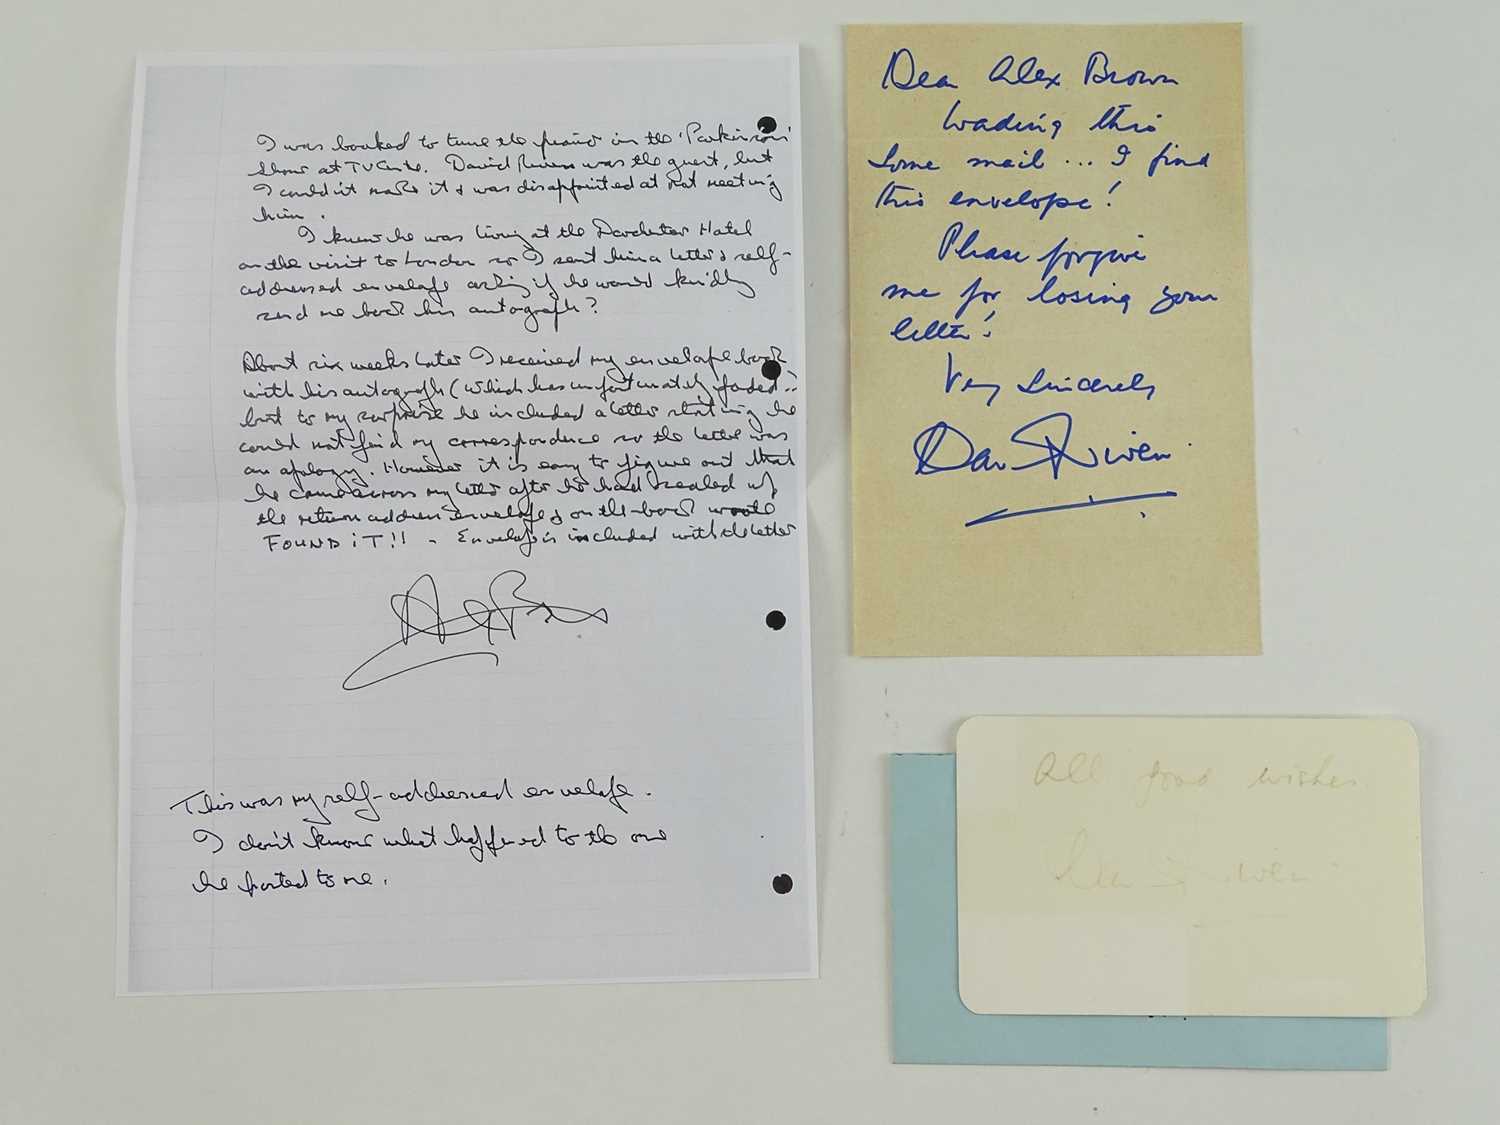 I was booked to tune the piano in the 'Parkinson'
Show at TV Centre. David Niven was the guest, but
I couldn't make it & was disappointed at not meeting
him.
I knew he was living at the Dorchester Hotel
on the visit to London so I sent him a letter & self-
addressed envelope asking if he would kindly
send me back his autograph?
About six weeks later I received my envelope back
with his autograph (which has unfortunately faded..
but to my surprise he included a letter stating he
could not find my correspondence so the letter was
an apology. However it is easy to figure out that
he came across my letter after he had sealed up
the return address envelope & on the back wrote
FOUND iT!! - Envelope is included with the letter
This was my self-addressed envelope.
I don't know what happened to the one
he posted to me.
Dear Alex Brown
this
some mail ... I find
this envelope!
Please forgive
me for losing your
letter!
Very Sincerely
David Niven
All good wishes
David Niven